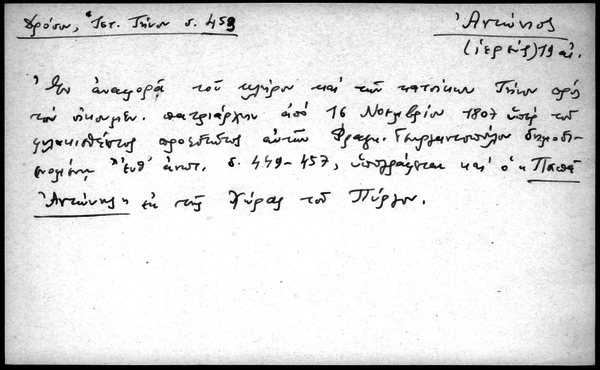 Δρόσου, Ἱστ. Τήνου σ. 453
Ἀντώνιος
(ἱερεύς) 19 αἰ.
Ἐν ἀναφορᾷ τοῦ κλήρου καὶ τῶν κατοίκων Τήνου πρός
τὸν οἰκουμεν. πατριάρχην ἀπό 16 Νοεμβρίου 1807 ὑπέρ τοῦ
φυλακισθέντος προεστῶτος αὐτῶν Φραγκ. Γεωργαντοπούλου δημοσι-
ευομένῃ ἔνθ' ἀνωτ. σ. 449-457, ὑπογράφεται καί ὁ "Παπᾶ
Ἀντώνης" ἐκ τῆς Χώρας τοῦ Πύργου.